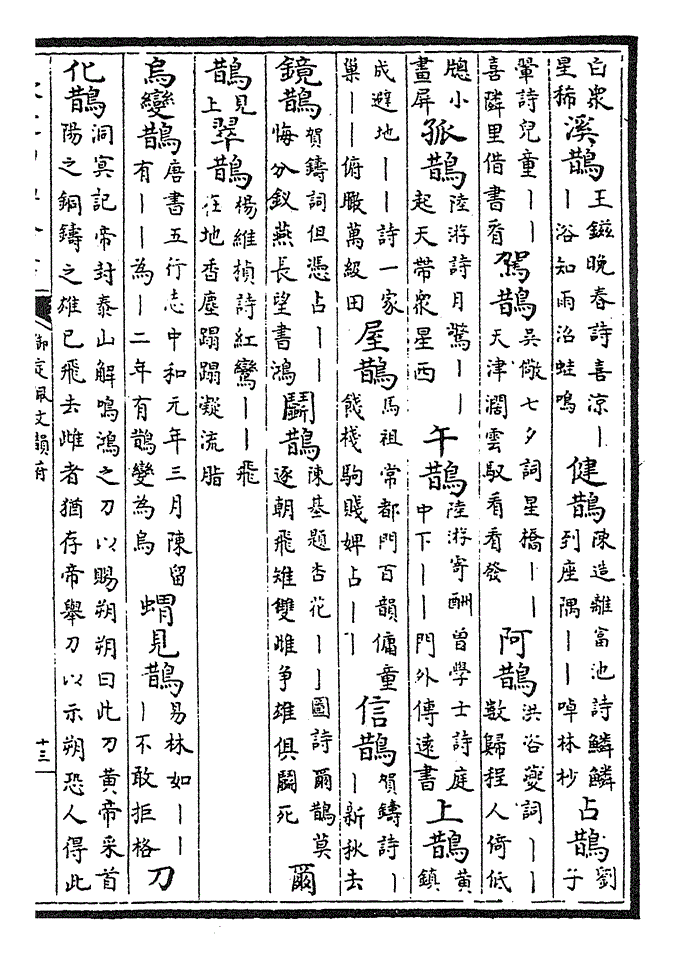 白衆星稀 溪鵲 王鎡晚春詩喜涼丨丨浴知雨沿蛙鳴 健鵲 陳造離富池詩鱗鱗到座隅丨丨啅林杪 占鵲 劉子
翬詩兒童丨丨喜隣里借書看 駕鵲 吳儆七夕詞星橋丨丨天津濶雲馭看看發 阿鵲 洪咨夔詞丨丨數歸程人倚低
牕小畫屏 孤鵲 陸游詩月驚丨丨起天帶衆星西 午鵲 陸游寄酬曾學士詩庭中下丨丨門外傳遠書 上鵲 黄鎮
成避地丨丨詩一家巢丨丨俯瞰萬級田 屋鵲 馬祖常都門百韻傭童餞棧駒賤婢占丨丨 信鵲 賀鑄詩丨丨新秋去
鏡鵲 賀鑄詞但憑占丨丨悔分釵燕長望書鴻 鬬鵲 陳基題杏花丨丨圖詩爾鵲莫逐朝飛雉雙雌争雄俱鬬死 爾
鵲 見上 翠鵲 楊維楨詩紅鸞丨丨飛在地香塵蹋蹋凝流脂
烏變鵲 唐書五行志中和元年三月陳留有丨丨為丨二年有鵲變為烏 蝟見鵲 易林如丨丨丨不敢拒格 刀
化鵲 洞冥記帝封泰山解鳴鴻之刀以賜朔朔曰此刀黄帝采首陽之銅鑄之雄已飛去雌者猶存帝舉刀以示朔恐人得此
御定佩文韻府
十三